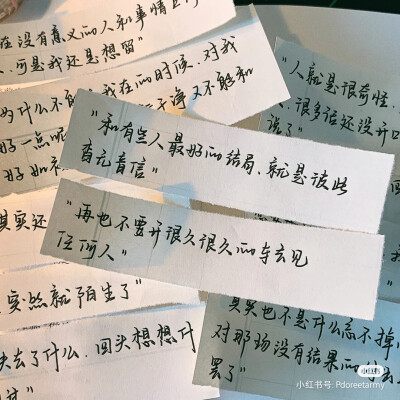 在没有意义的人和事情上
可是我还是想留"
"人就是很奇怪、
为什么不能
我在的时候、对我
很多话还没开口
好一点呢
又不能和
说了"
好如初
"和有些人最好的结局、就是彼此
杳无音信"
其实还
"再也不要开很久很久的车去见
任何人"
突然就陌生了"
其实也不是什么忘不掉
失去了什么、回头想想什
对那场没有结果的
罢了"
小红书
小红书号: Pdoreetarmy